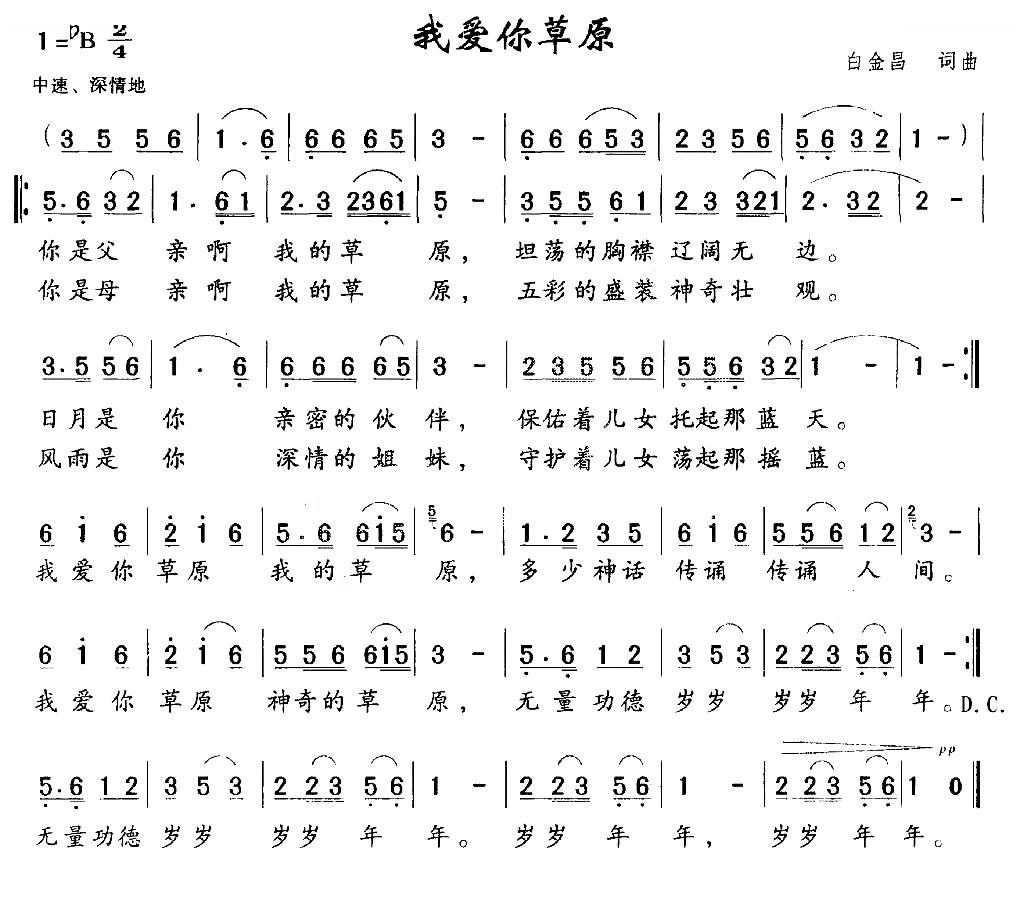 我爱你草原
1=♭B 2/4
白金昌 词曲
中速、深情地
(3 5 5 6 | 1 . 6 | 6 6 6 5 | 3 - | 6 6 6 5 3 | 2 3 5 6 | 5 6 3 2 | 1 - ) |
‖: 5 . 6 3 2 | 1 . 6 1 | 2 . 3 2 3 6 1 | 5 - | 3 5 5 6 1 | 2 3 3 2 1 | 2 . 3 2 | 2 - |
你是父 亲啊 我的草 原, 坦荡的胸襟 辽阔无 边。
你是母 亲啊 我的草 原, 五彩的盛装 神奇壮 观。
3 . 5 5 6 | 1 . 6 | 6 6 6 6 5 | 3 - | 2 3 5 5 6 | 5 5 6 3 2 | 1 - | 1 - :‖
日月是 你 亲密的 伙 伴, 保佑着儿女 托起那 蓝 天。
风雨是 你 深情的 姐 妹, 守护着儿女 荡起那 摇 蓝。
6 i 6 | 2 i 6 | 5 . 6 6 i 5 | 5 6 - | 1 . 2 3 5 | 6 i 6 | 5 5 6 1 2 | 2 3 - |
我 爱 你 草原 我 的 草 原, 多 少 神话 传诵 传诵 人 间。
6 i 6 | 2 i 6 | 5 5 6 6 i 5 | 3 - | 5 . 6 1 2 | 3 5 3 | 2 2 3 5 6 | 1 - :‖
我 爱 你 草原 神奇的 草 原, 无 量 功德 岁岁 岁岁 年 年。D.C.
pp
5 . 6 1 2 | 3 5 3 | 2 2 3 5 6 | 1 - | 2 2 3 5 6 | 1 - | 2 2 3 5 6 | 1 0 ‖
无量功德 岁岁 岁岁 年 年。 岁岁 年 年, 岁岁 年 年。